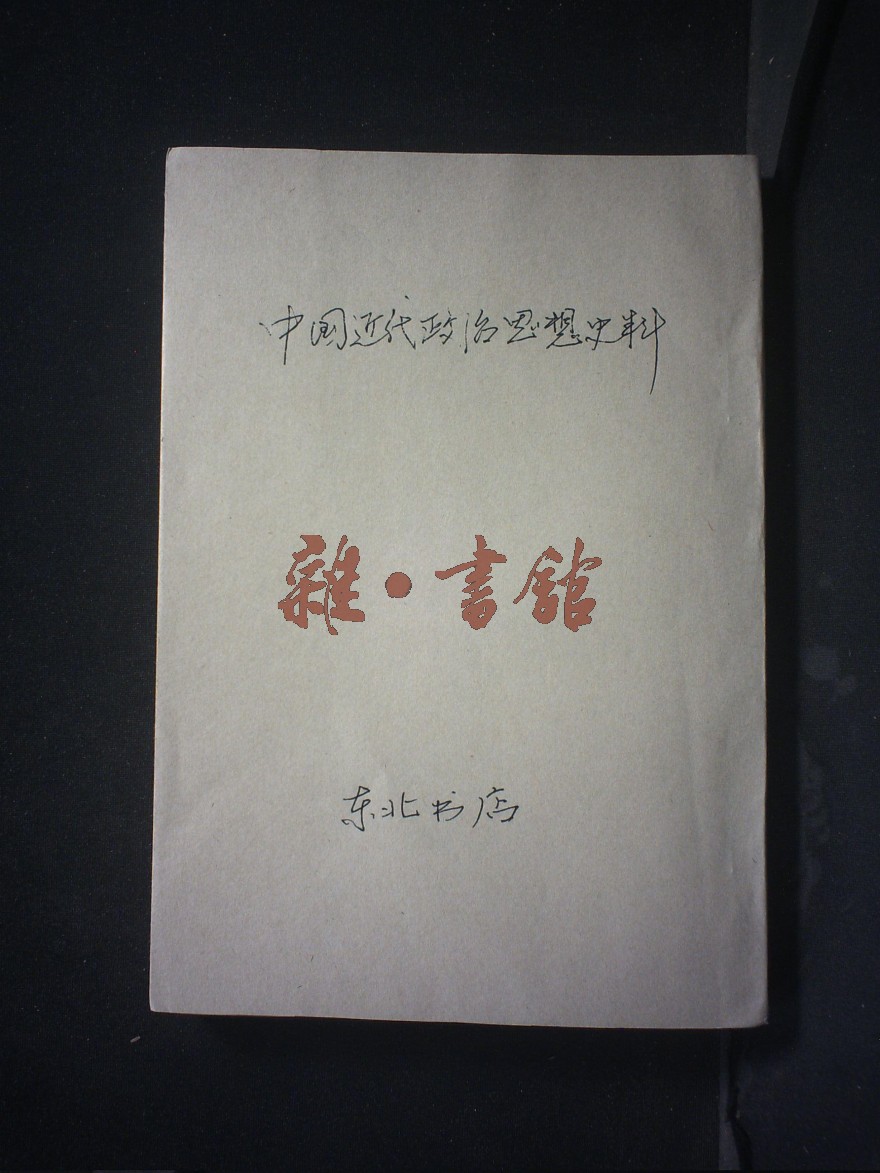 中国近代政治思想史料
雜·書館
东北书店